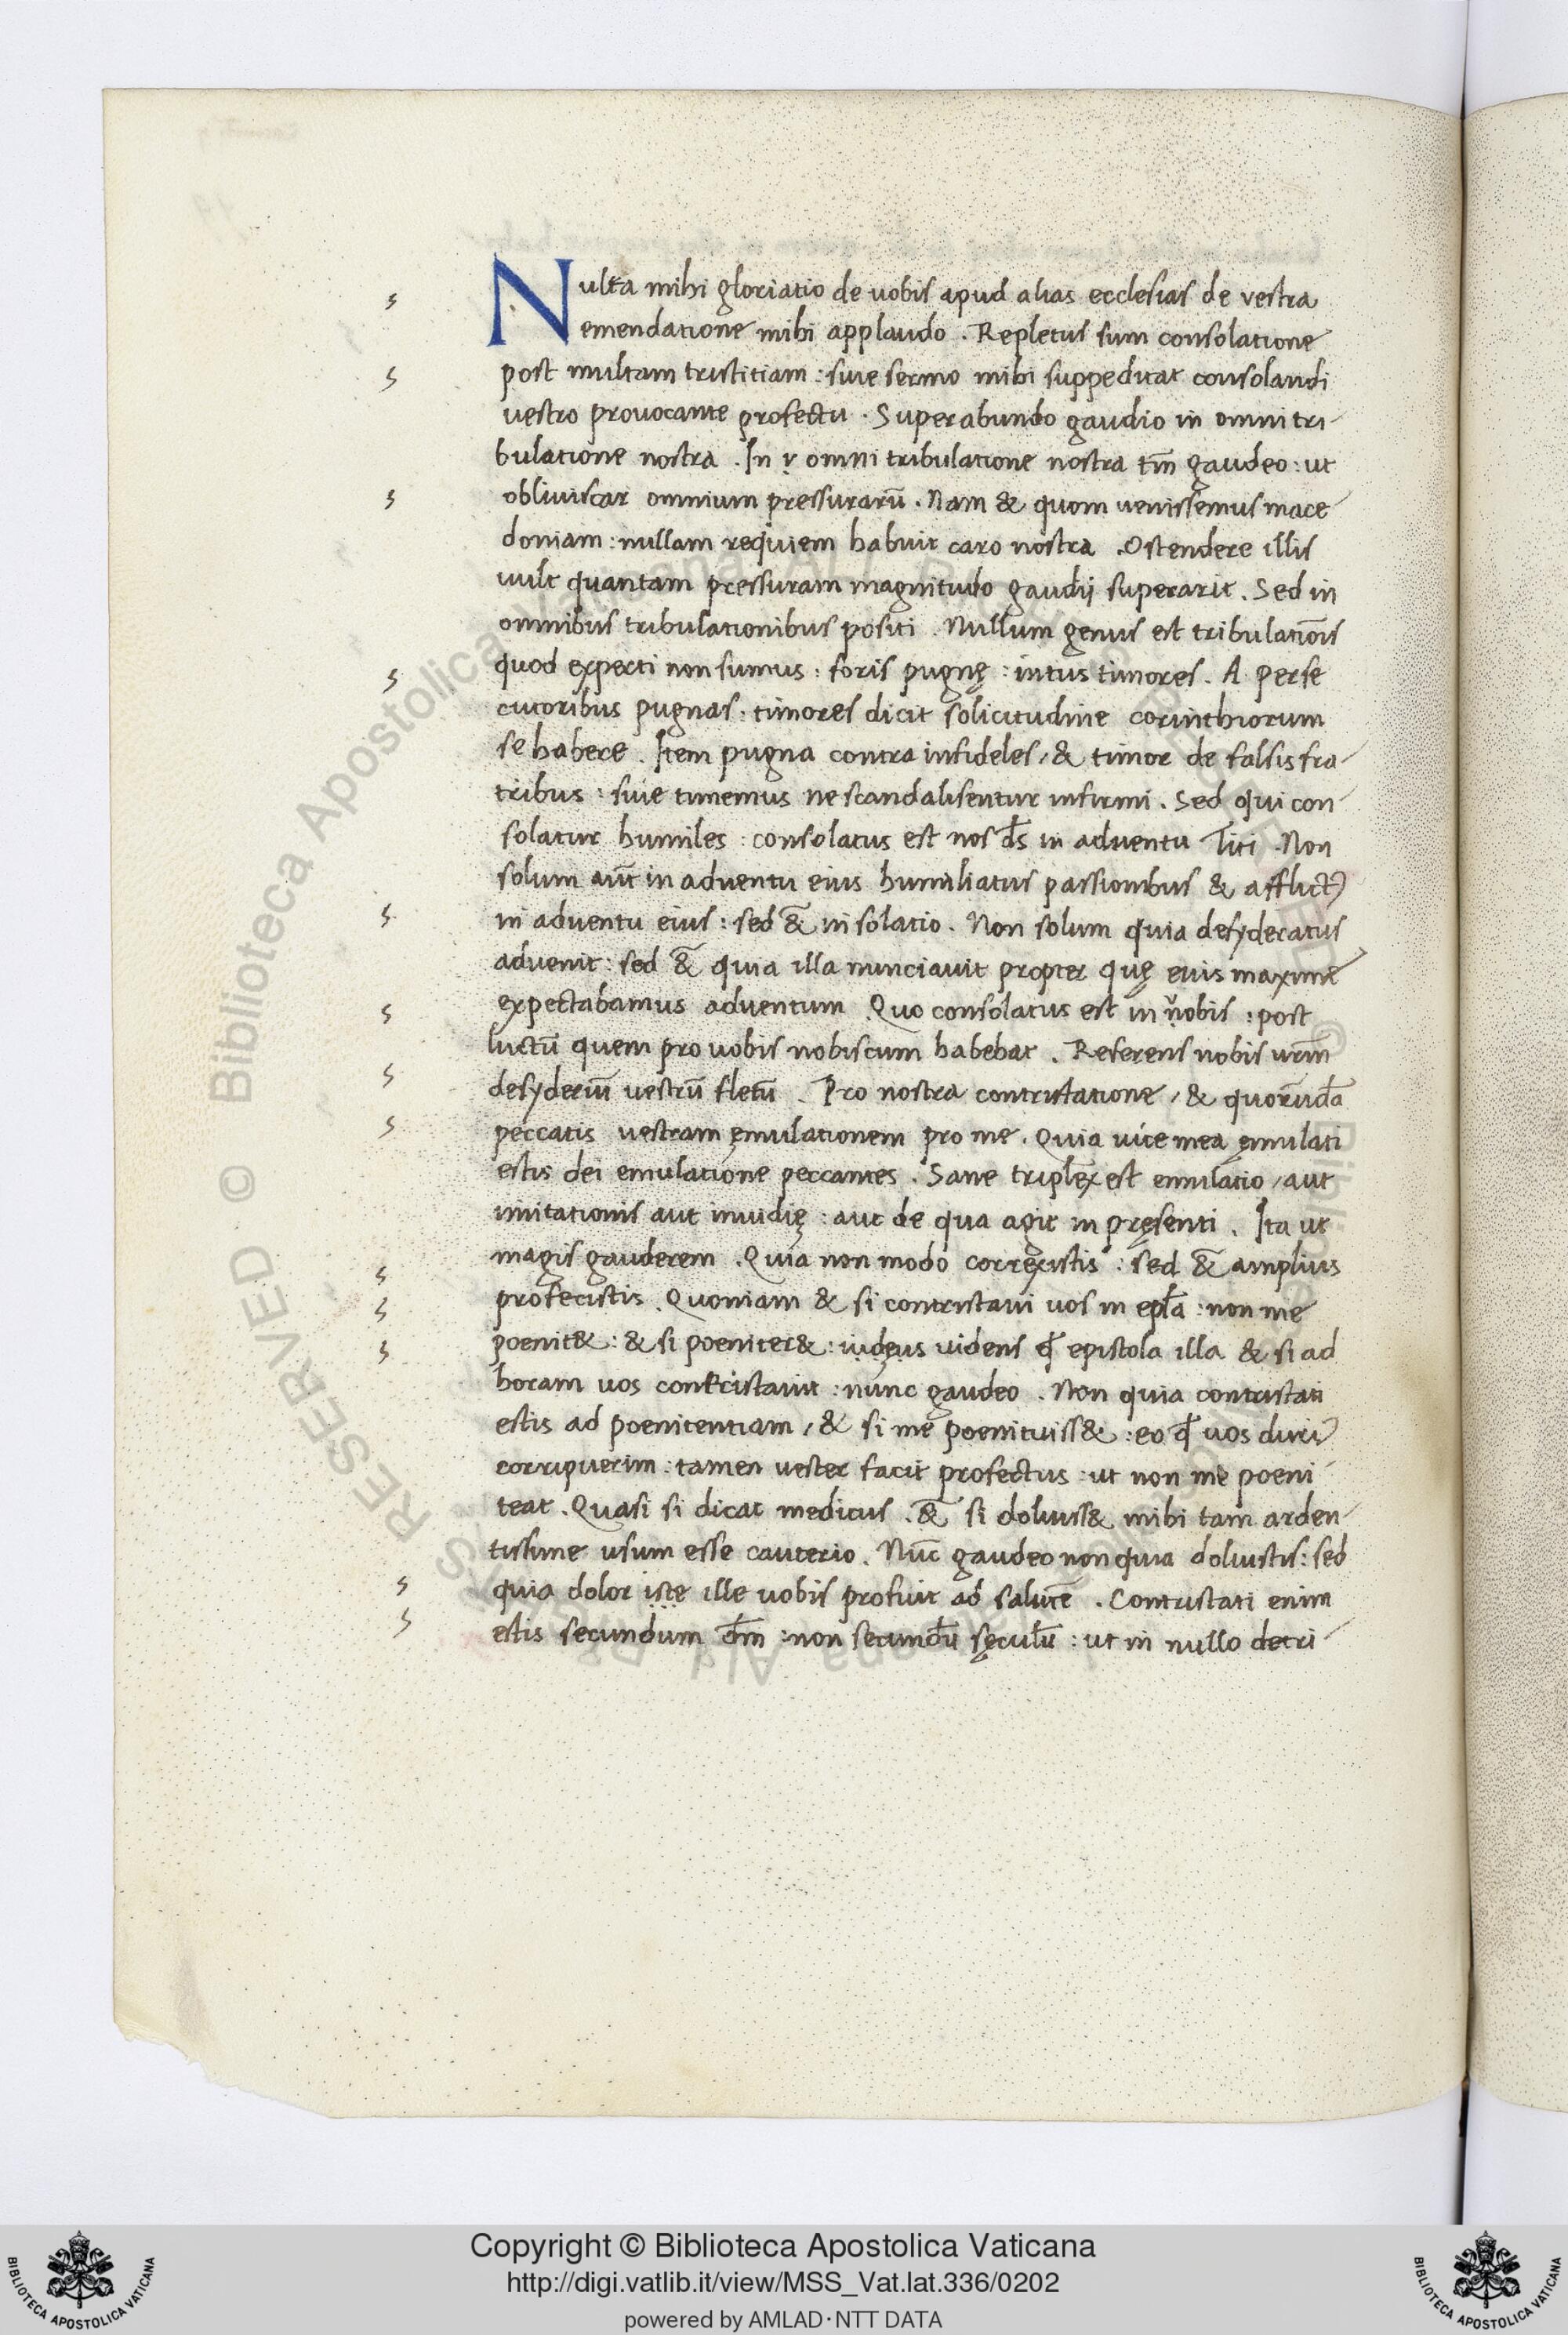 Nulta mihi gloriatio de uobis apud alias ecclesias de vestra
emendatione mihi applaudo . Repletus sum consolatione
post multam tristitiam : siue sermo mihi suppeditat consolandi
vestro provocante profectu . Superabundo gaudio in omni tri-
bulatione nostra . In v omni tribulatione nostra tm̄ gaudeo : ut
obliuiscar omnium pressurarū . Nam & quom uenissemus mace-
doniam : nullam requiem habuit caro nostra . Ostendere illis
uult quantam pressuram magnitudo gaudij superarit . Sed in
omnibus tribulationibus positi . Nullum genus est tribulatiōis
quod experti non sumus : foris pugnę : intus timores . A perse
cutoribus pugnas : timores dicit solicitudine corinthiorum
se habere . Item pugna contra infideles , & timor de falsis fra-
tribus : siue timemus ne scandalisentur infirmi . Sed qui con-
solatur humiles : consolatus est nos d̄s in adventu Titi . Non
solum aūt in adventu eius humiliatus passionibus & afflict9
in adventu eius : sed &̄ in solatio . Non solum quia desyderatus
advenit : sed &̄ quia illa nunciavit propter quę eius maxime
expectabamus adventum . Quo consolatus est in vobis : post
luctū quem pro uobis nobiscum habebat . Referens nobis urm̄
desyderiū vestrū fletū . Pro nostra contristatione , & quorūdā
peccatis vestram ęmulationem pro me . Quia uice mea ęmulati
estis dei emulatione peccantes . Sane triplex est emulatio , aut
imitationis aut inuidię : aut de qua agit in pręsenti . Ita ut
magis gauderem . Quia non modo correxistis : sed &̄ amplius
profecistis . Quoniam & si contristavi uos in epl̄a : non me
poenit& : & si poeniter& : iudeus uidens ꝙ epistola illa & si ad
horam uos contristavit : nunc gaudeo . Non quia contristati
estis ad poenitentiam , & si me poenituiss& : eo ꝙ uos duri9
corripuerim : tamen uester facit profectus : ut non me poeni-
teat . Quasi si dicat medicus . &̄ si doluiss& mihi tam arden-
tissime usum esse cauterio . Nūc gaudeo non quia doluistis : sed
quia dolor iste ille uobis profuit ad salutē . Contristati enim
estis secundum dm̄ : non secundū sęculū : ut in nullo detri-
Copyright © Biblioteca Apostolica Vaticana
http://digi.vatlib.it/view/MSS_Vat.lat.336/0202
powered by AMLAD·NTT DATA